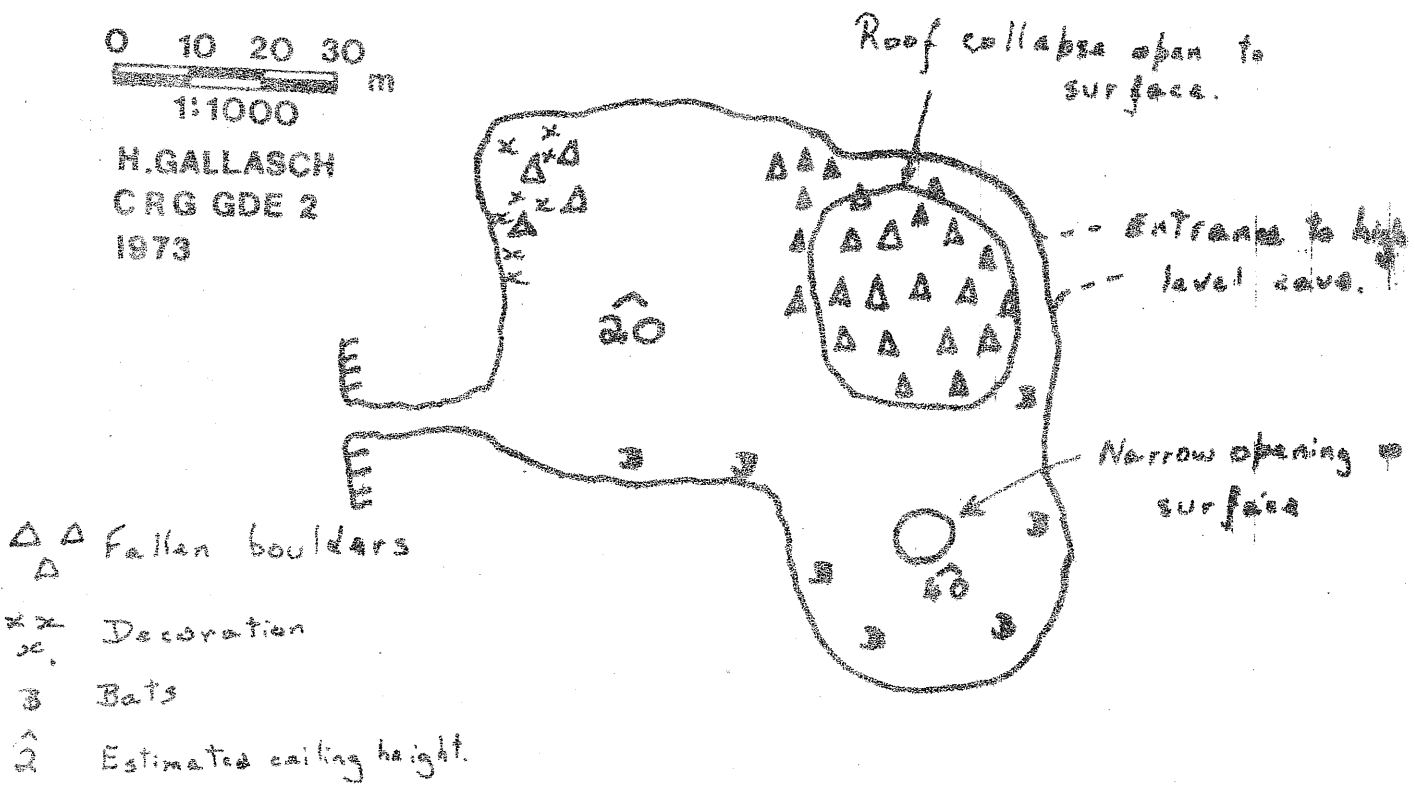 0 10 20 30
m
1:1000
H.GALLASCH
CRG GDE 2
1973
Roof collapse open to
surface.
Entrance to high
level cave.
20
B
B
B
Narrow opening
surface
B
B
40
B
B
Fallen boulders
Decoration
B Bats
2̂ Estimated ceiling height.